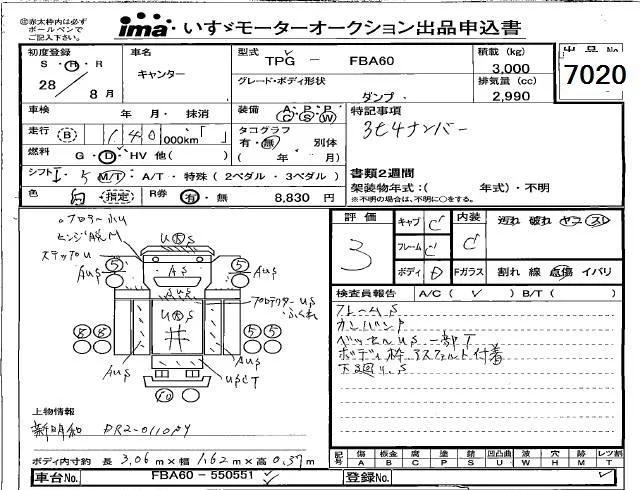 ㊟赤太枠内は必ず
ボールペンで
ご記入下さい。
ima いすゞモーターオークション出品申込書
初度登録
S・H・R
28 8月
車名
キャンター
型式
TPG - FBA60
グレード・ボディ形状
ダンプ
積載 (kg)
3,000
排気量 (cc)
2,990
出品No.
7020
車検 年・月・抹消
走行 B 140 000km「 」
燃料 G・D・HV 他( )
シフト I・5 M/T・A/T・特殊(2ペダル・3ペダル)
色 白 指定 R券 有・無 8,830 円
装備 A・P・P
G S W
タコグラフ
有・無 別体
( 年 月)
特記事項
3t4ナンバー
書類2週間
架装物年式:( 年式)・不明
※不明の場合は、不明に○をする。
評価
3
キャブ C
フレーム C
ボディ D
内装 C
Fガラス
遅れ 破れ ヤニ スレ
割れ 線 点傷 イバリ
検査員報告 A/C( ✓ ) B/T( )
フレームS
カンバンP
ベッセルUS 一部T
ボディ枠アスファルト付着
下廻りS
ステップU
AUS
5
5
US
AS
AUS
AUS
プロテクターUS
8 8
5 5
AUS
AUS
USCT
10
上物情報
新明和 DR2-0110PY
ボディ内寸約 長 3.06m×幅 1.62m×高 0.37m
車台No. FBA60-550551
記号
傷 板金 腐 塗 錆 凹凸曲 波 穴 跡 レツ割
A B C P S U W H M T
登録No.